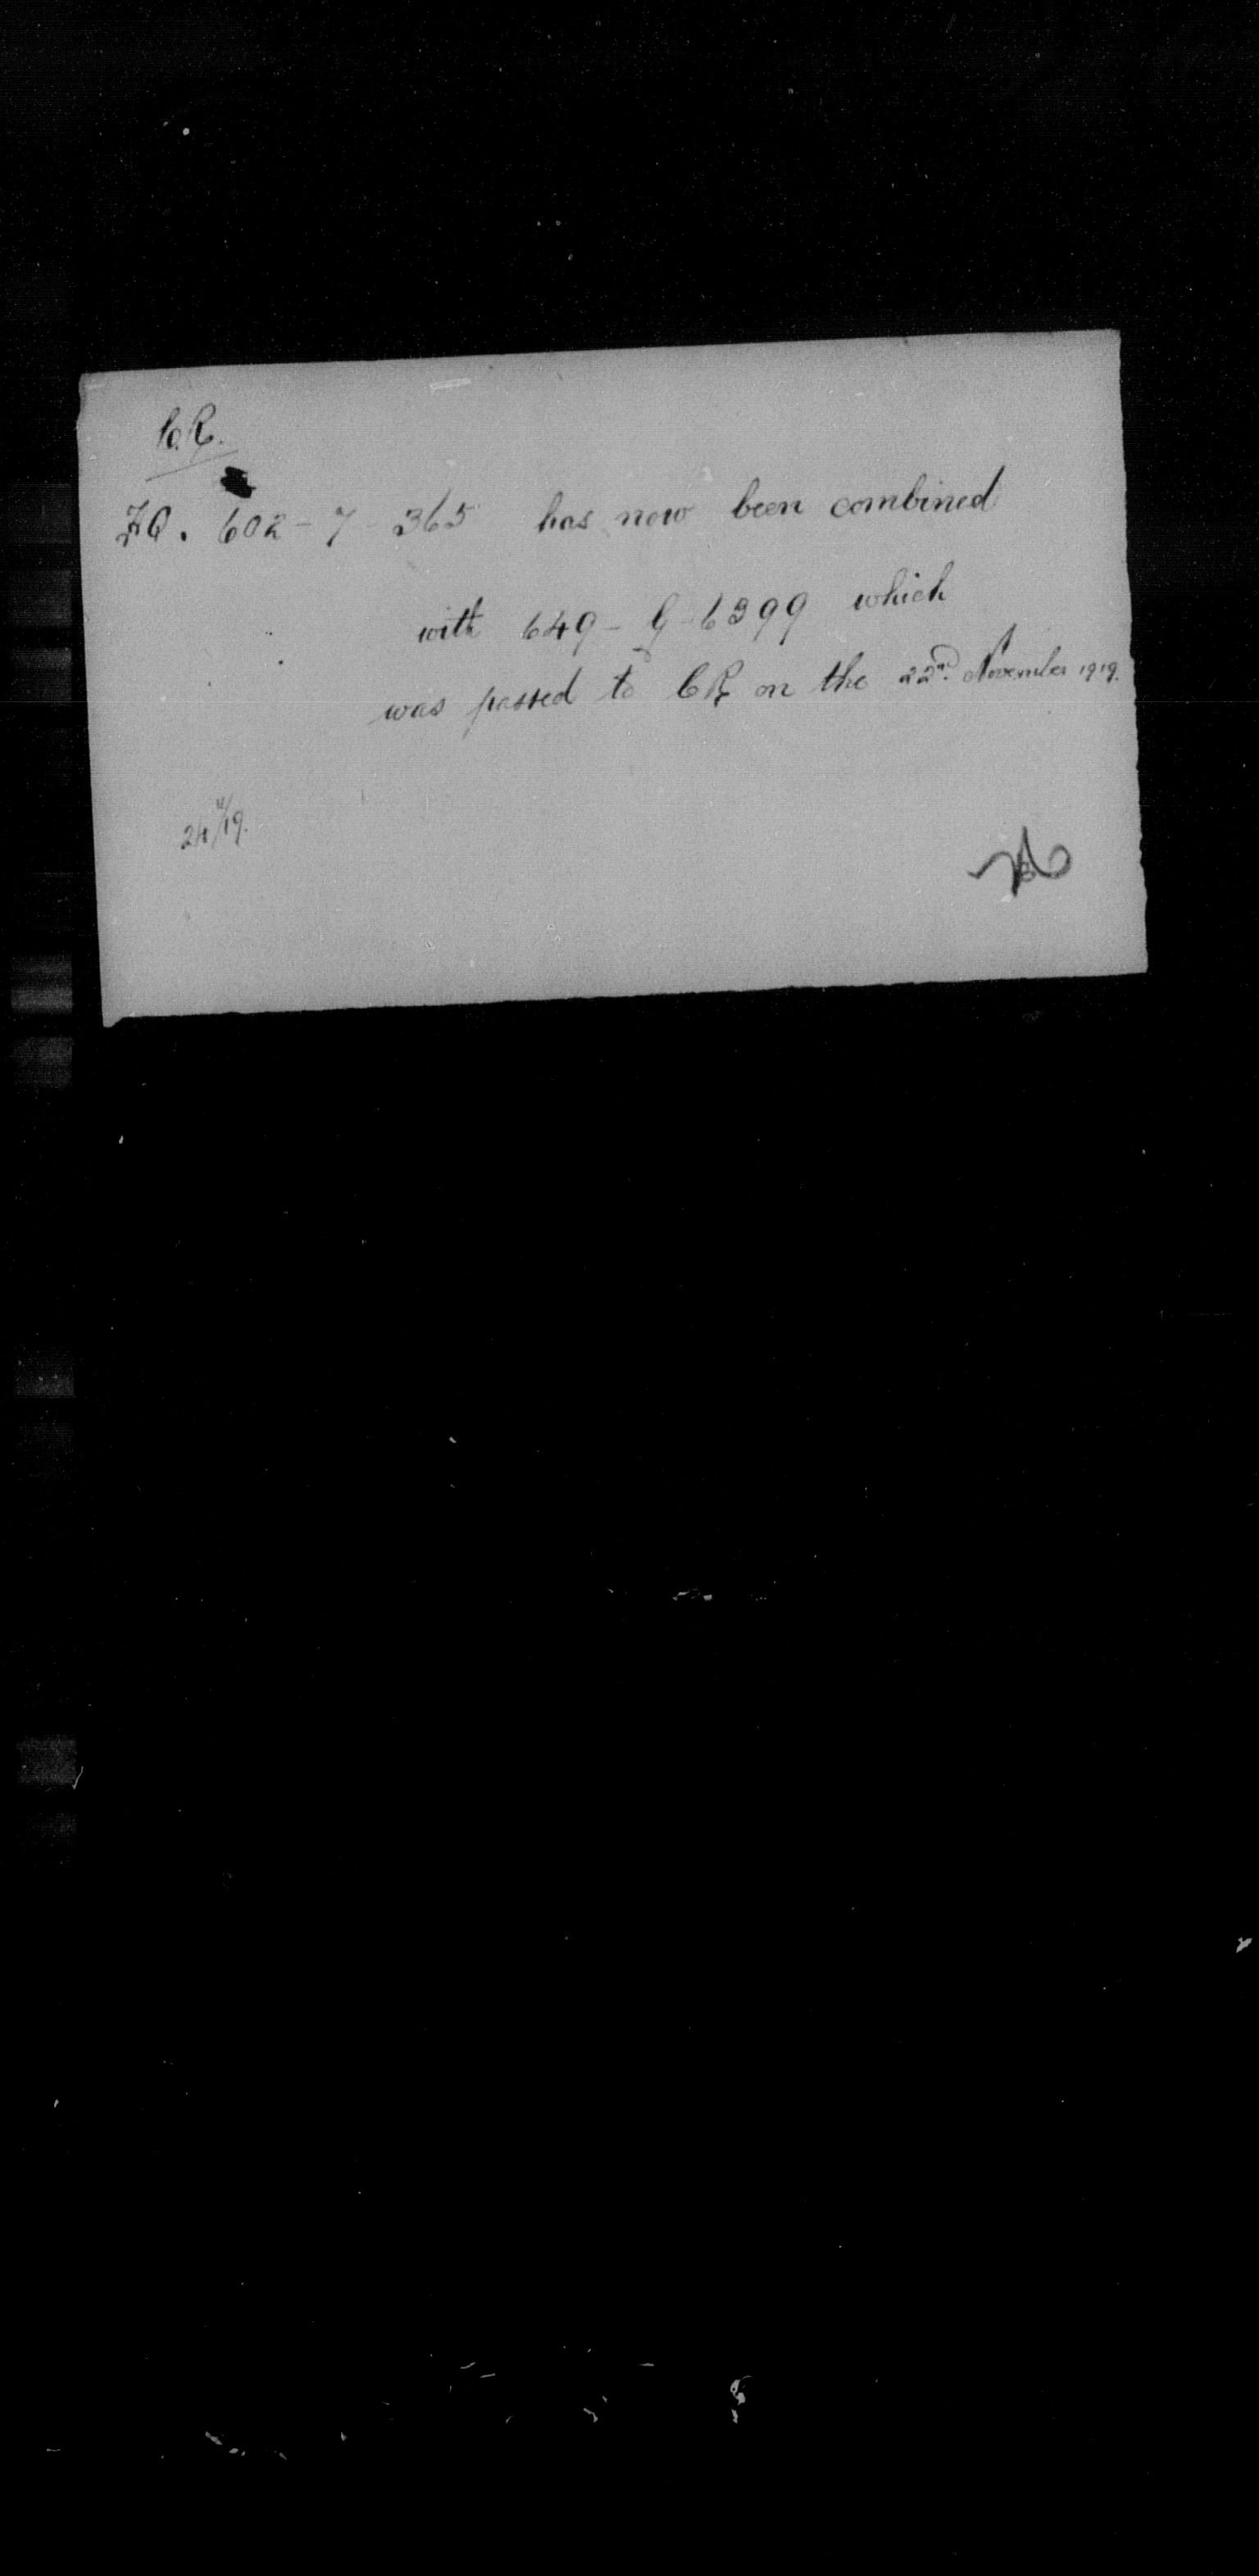 C.R.
H.Q. 602-7-365 has now been combined
with 649-G-6399 which
was passed to CR on the 22nd. November 1919.
24/11/19.